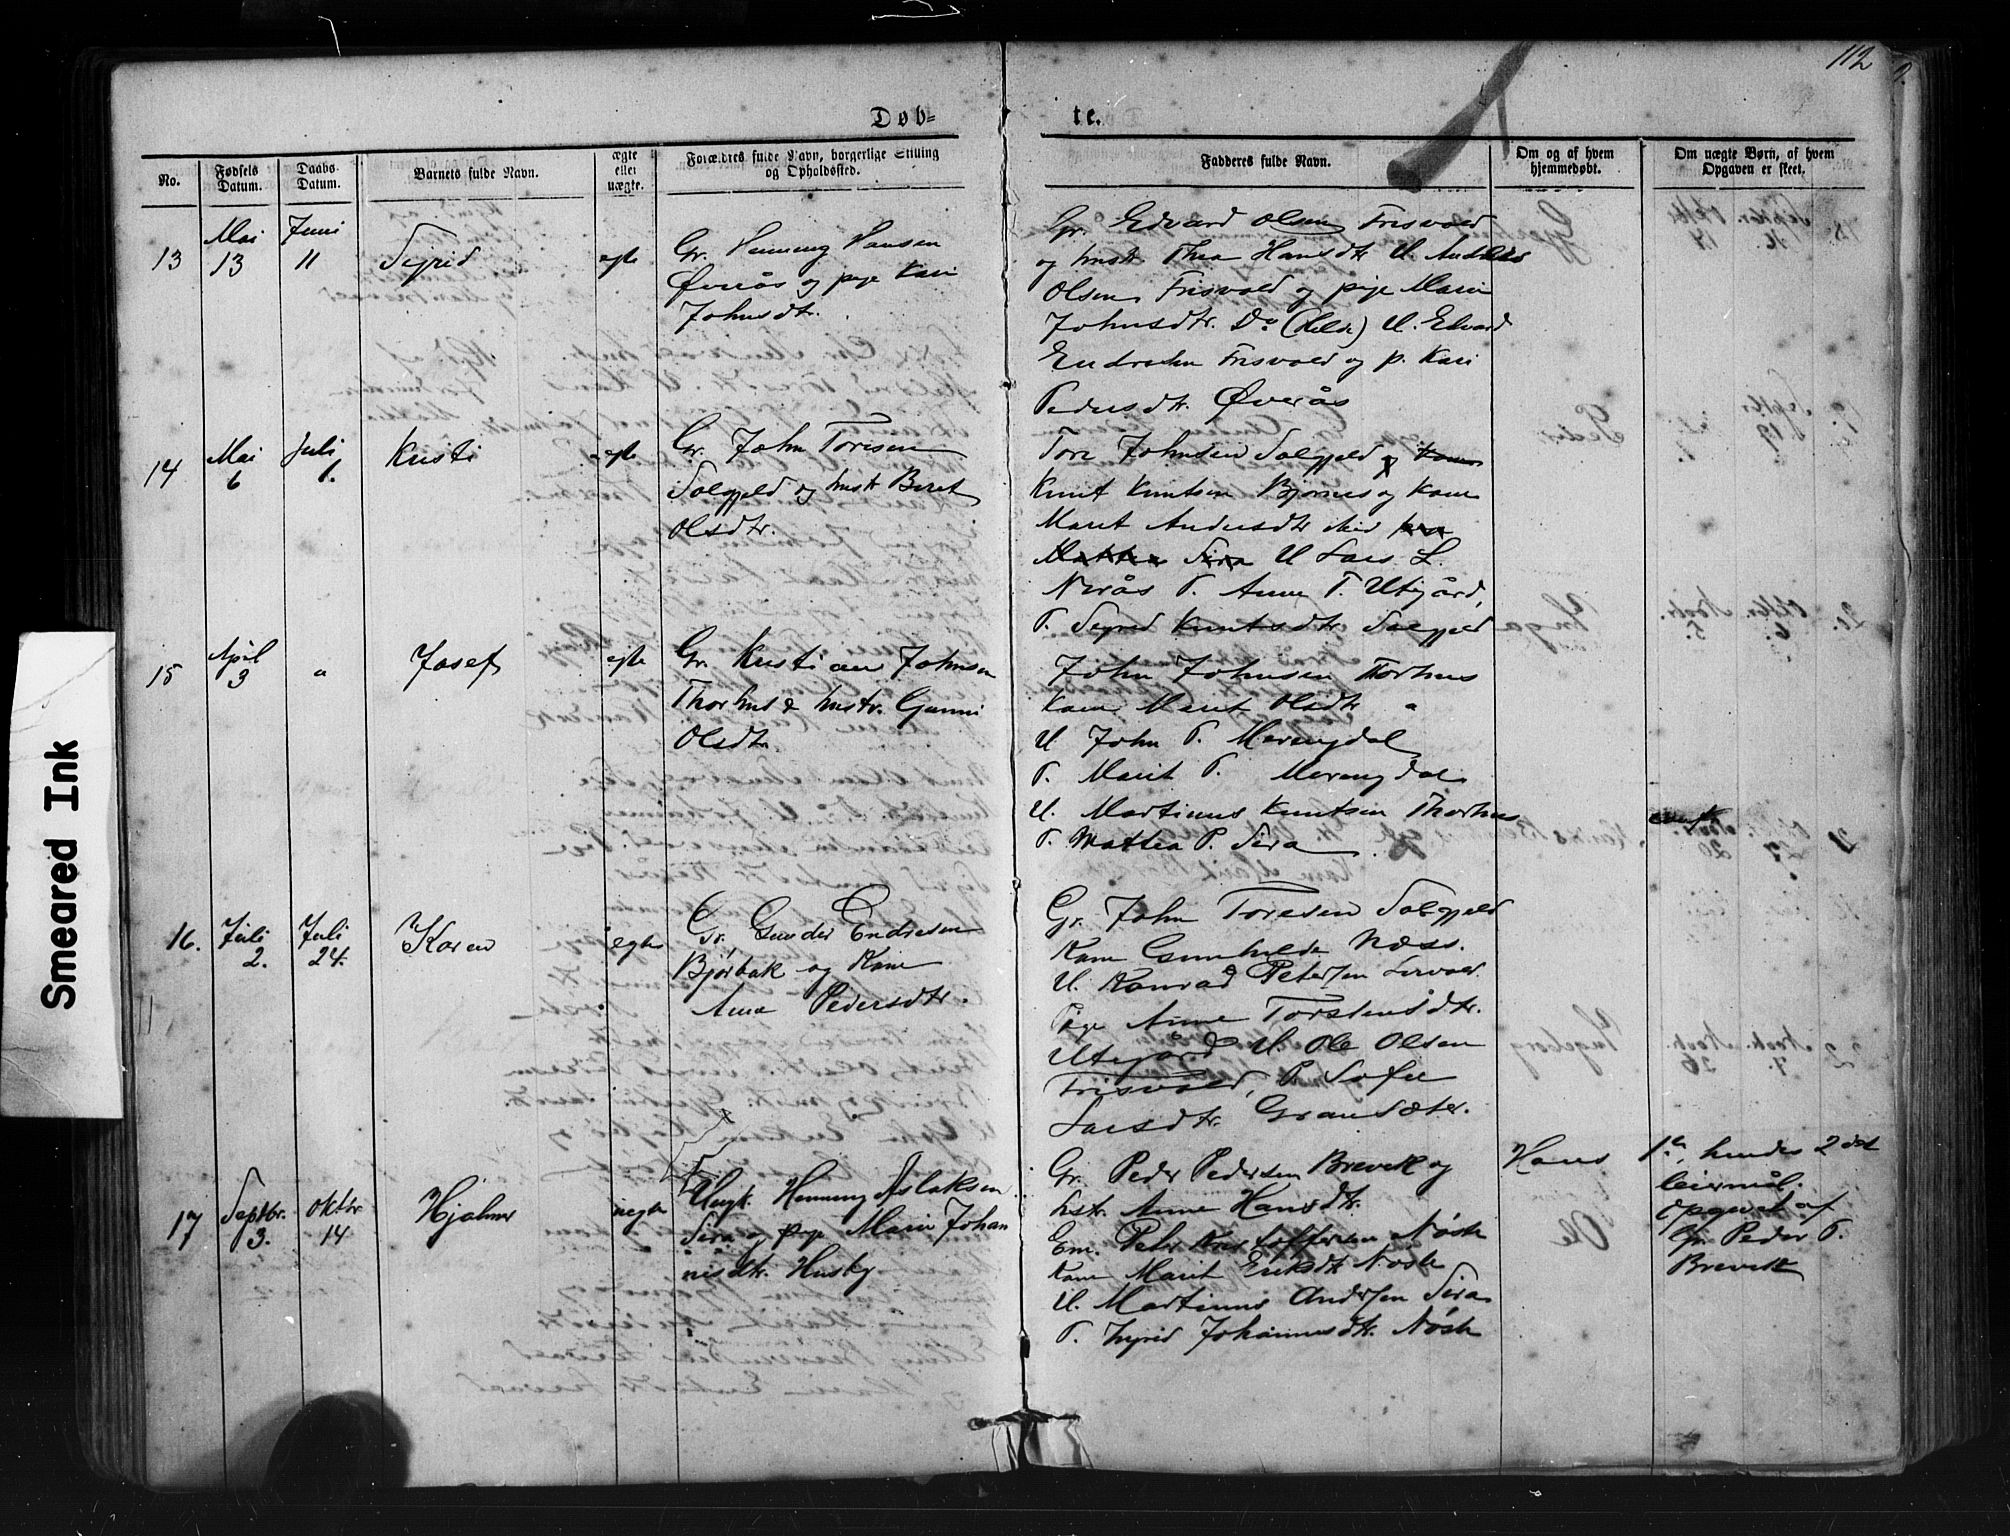 112
Døb=
te.
No.
Fødsels Datum.
Daabs-Datum.
Barnets fulde Navn.
ægte eller uægte.
Forældres fulde Navn, borgerlige Stilling og Opholdssted.
Fadderes fulde Navn.
Om og af hvem hjemmedøbt.
Om uægte Børn, af hvem Opgaven er skeet.
13
Mai 13
Juni 11
Sigrid
egte
Gr. Henning Hansen
Øverås og pige Kari
Johnsdtr.
Gr. Edvard Olsen Frisvold
og hustr Thea Hansdtr U. Andreas
Olsen Frisvold og pige Marie
Johnsdtr. Do (Helde) U. Edvard
Endresen Frisvold og p. Kari
Pedersdtr. Øverås
14
Mai 6
Juli 1.
Kristi
egte
Gr. John Toresen
Solgjeld og hustr Beret
Olsdtr.
Tore Johnsen Solgjeld og Kone
Knut Knutsen Bjørnes og Kone
Marit Andersdtr
Mattea Sira U Lars L.
Nerås P. Anne T. Utigård,
P. Sigrid Knutsdtr Solgjeld
15
April 3
"
Josef
egte
Gr. Kristian Johnsen
Thorhus & hustr. Gunni
Olsdtr.
John Johnsen Thorhus
Kone Marit Olsdtr "
U John P. Merengdal
P. Marit P. Merengdal
U. Martinus Knutsen Thorhus
P. Mattea P. Sira
16.
Juli 2.
Juli 24.
Karen
egte
Gr. Gunder Endresen
Bjørbak og Kone
Ane Pedersdtr.
Gr. John Toresen Solgjeld
Kone Gunhilde Næss.
U. Konrad Petersen
Pige Anne Torstensdtr.
Utigård U. Ole Olsen
Frisvold, P. Sofie
Larsdtr. Gransæter.
17
Septbr. 3.
Oktbr 14
Hjalmar
uegte
Ungk. Henning Aslaksen
Sira og pige Marie Johan
nisdtr. Husby
Gr. Peder Pedersen Brevik og
hstr. Anne Hansdtr.
Em. Peter Kristoffersen Nøste
Kone Marit Eriksdtr Nøste
U. Martinus Andersen Sira
P. Ingrid Johannesdtr. Nøste
Hans 1ste, hendes 2det
leiermål.
Opgivet af
Gr. Peder P.
Brevik
Smeared Ink